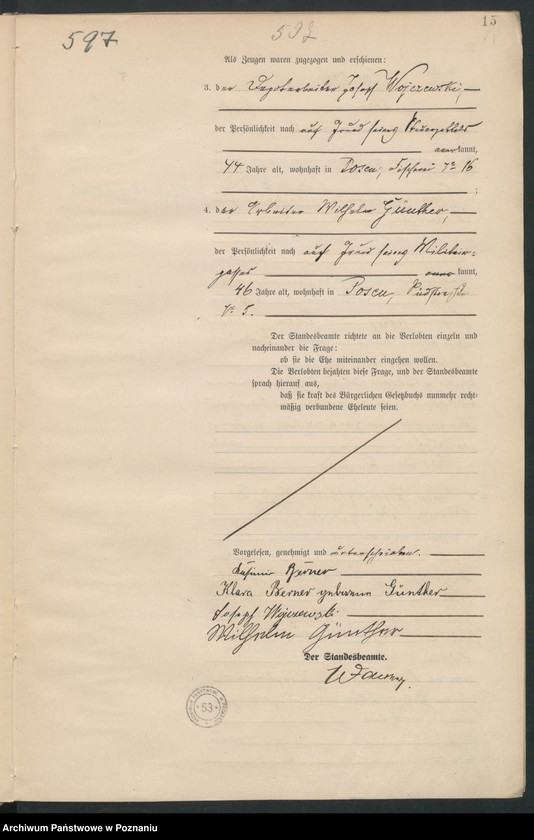 15
597
592
Als Zeugen waren zugezogen und erschienen:
3. der Depotarbeiter Joseph Wojczewski,
der Persönlichkeit nach auf Grund seines Steuerzettels
kannt,
44 Jahre alt, wohnhaft in Posen, Fischerei № 16
;
4. der Arbeiter Wilhelm Günther,
der Persönlichkeit nach auf Grund seines Militär-
passes kannt,
46 Jahre alt, wohnhaft in Posen,
№ 5.
Der Standesbeamte richtete an die Verlobten einzeln und
nacheinander die Frage:
ob sie die Ehe miteinander eingehen wollen.
Die Verlobten bejahten diese Frage, und der Standesbeamte
sprach hierauf aus,
daß sie kraft des Bürgerlichen Gesetzbuchs nunmehr recht-
mäßig verbundene Eheleute seien.
Vorgelesen, genehmigt und unterschrieben.
Kasimir Berner
Klara Berner geborene Günther
Joseph Wojczewski
Wilhelm Günther
Der Standesbeamte.
53
Archiwum Państwowe w Poznaniu